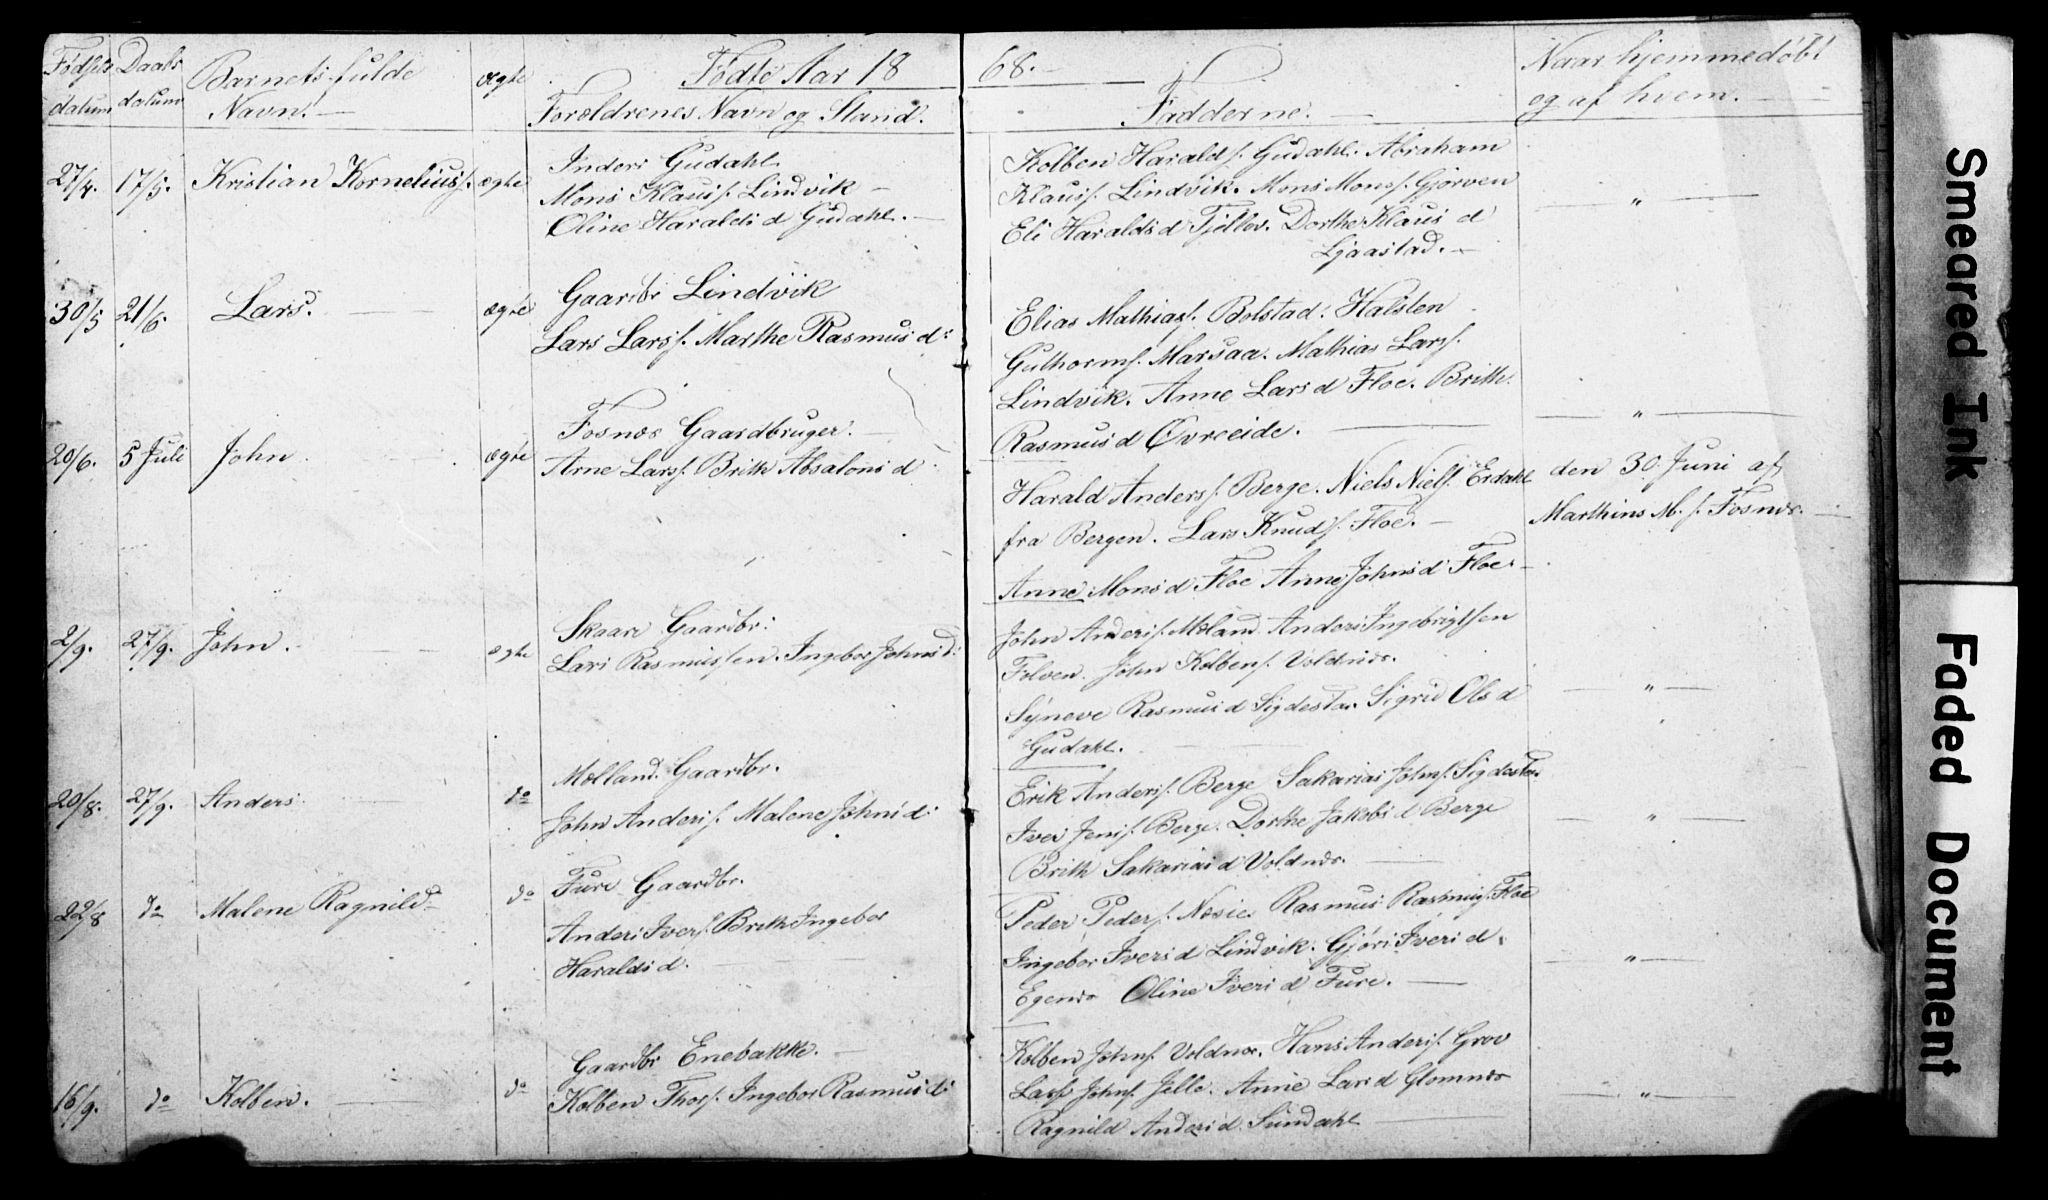 Fødsels datum Daabs datum Barnets fulde Navn. ægte Fødte Aar 1868. Naar hjemmedøbt
Forældrenes Navn og Stand. Fadderne. og af hvem.
27/4. 17/5. Kristian Kornelius ægte
Inderi Gudahl
Mons Klaus s. Lindvik
Oline Haralds d Gudahl.
Kolben Harald s. Gudahl. Abraham
Klaus s. Lindvik. Mons Mons s. Gjørven
Eli Haralds d Tjellov. Dorthe Klaus d
Ljaastad.
"
30/5 21/6. Lars. ægte
Gaardbr Lindvik
Lars Lars s. Marthe Rasmus d:
Elias Mathias s. Bolstad. Halsten
Guthorm s. Marsaa. Mathias Lars s.
Lindvik. Anne Lars d Floe. Brith
Rasmus d Øvreeide.
"
20/6. 5 Juli John ægte
Fosnæs Gaardbruger.
Arne Lars s. Brith Absalons d
Harald Anders s. Berge. Niels Niels s. Erdahl
fra Bergen. Lars Knud s. Floe.
Anne Mons d Floe Anne Johns d Floe.
den 30. Juni af
Marthins M. s. Fosnæs.
2/9. 27/9. John. ægte
Skaare Gaardbr:
Lars Rasmussen. Ingebor Johns d:
John Anders s. Mæland. Anders Ingebrigtsen
Folven. John Kolben s. Voldnæs.
Syneve Rasmus d Sigdestad. Sigrid Ols d
Gudahl.
"
20/8. 27/9. Anders do
Mælland. Gaardbr.
John Anders s. Malene Johns d:
Erik Anders s. Berge Sakarias John s. Sigdestad
Iver Jens s. Berge. Dorthe Jakobs d Berge
Brith Sakarias d Voldnæs.
"
22/8 do Malene Ragnild do
Fure Gaardbr.
Anders Iver s. Brith Ingebor
Haralds d.
Peder Peder s. Næsie. Rasmus Rasmus s. Floe
Ingebor Ivers d Lindvik. Gjøri Ivers d.
Egenæs Oline Ivers d Fure.
"
16/9. do Kolben. do
Gaardbr Enebakke.
Kolben Thor s. Ingebor Rasmus d:
Kolben John s. Voldnæs. Hans Anders s. Grov
Lars John s. Jelle. Anne Lars d Glomnæs
Ragnild Anders d. Sundahl
"
Smeared Ink
Faded Document